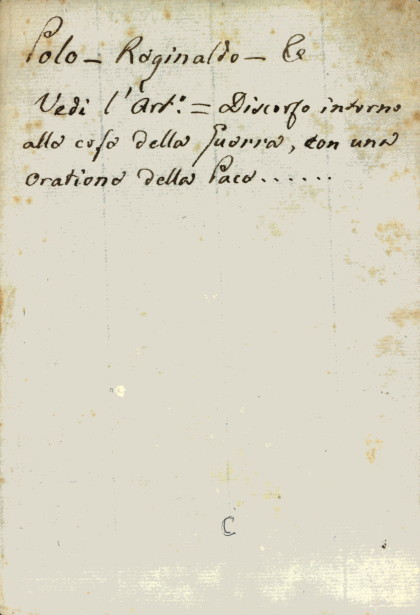 Polo - Reginaldo - Ec
Vedi l'Art.º = Discorso intorno
alle cose della Guerra, con una
Oratione della Pace......
C